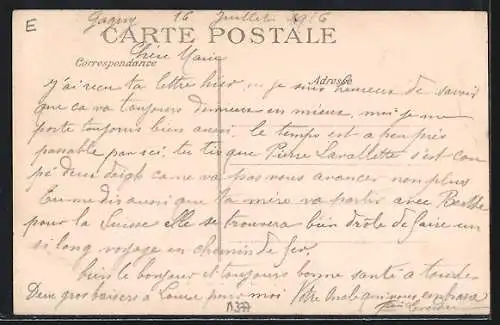 E
Gagny 16 Juillet 1916
CARTE POSTALE
Chère Marie
Correspondance
Adresse
J'ai reçu ta lettre hier, je suis heureux de savoir
que ca va toujours de mieux en mieux, moi je me
porte toujours bien aussi, le temps est a peu près
passable par ici, tu dis que Pierre Lavallette s'est cou
pé deux doigts ca ne va pas vous avancer non plus
Tu me dis aussi que ta mère va partir avec Berthe
pour la Suisse elle se trouvera bien drôle de faire un
si long voyage en chemin de fer.
bien le bonjour et toujours bonne santé a toutes
Deux gros baisers a Louise pour moi Votre Oncle qui vous embrasse
A377